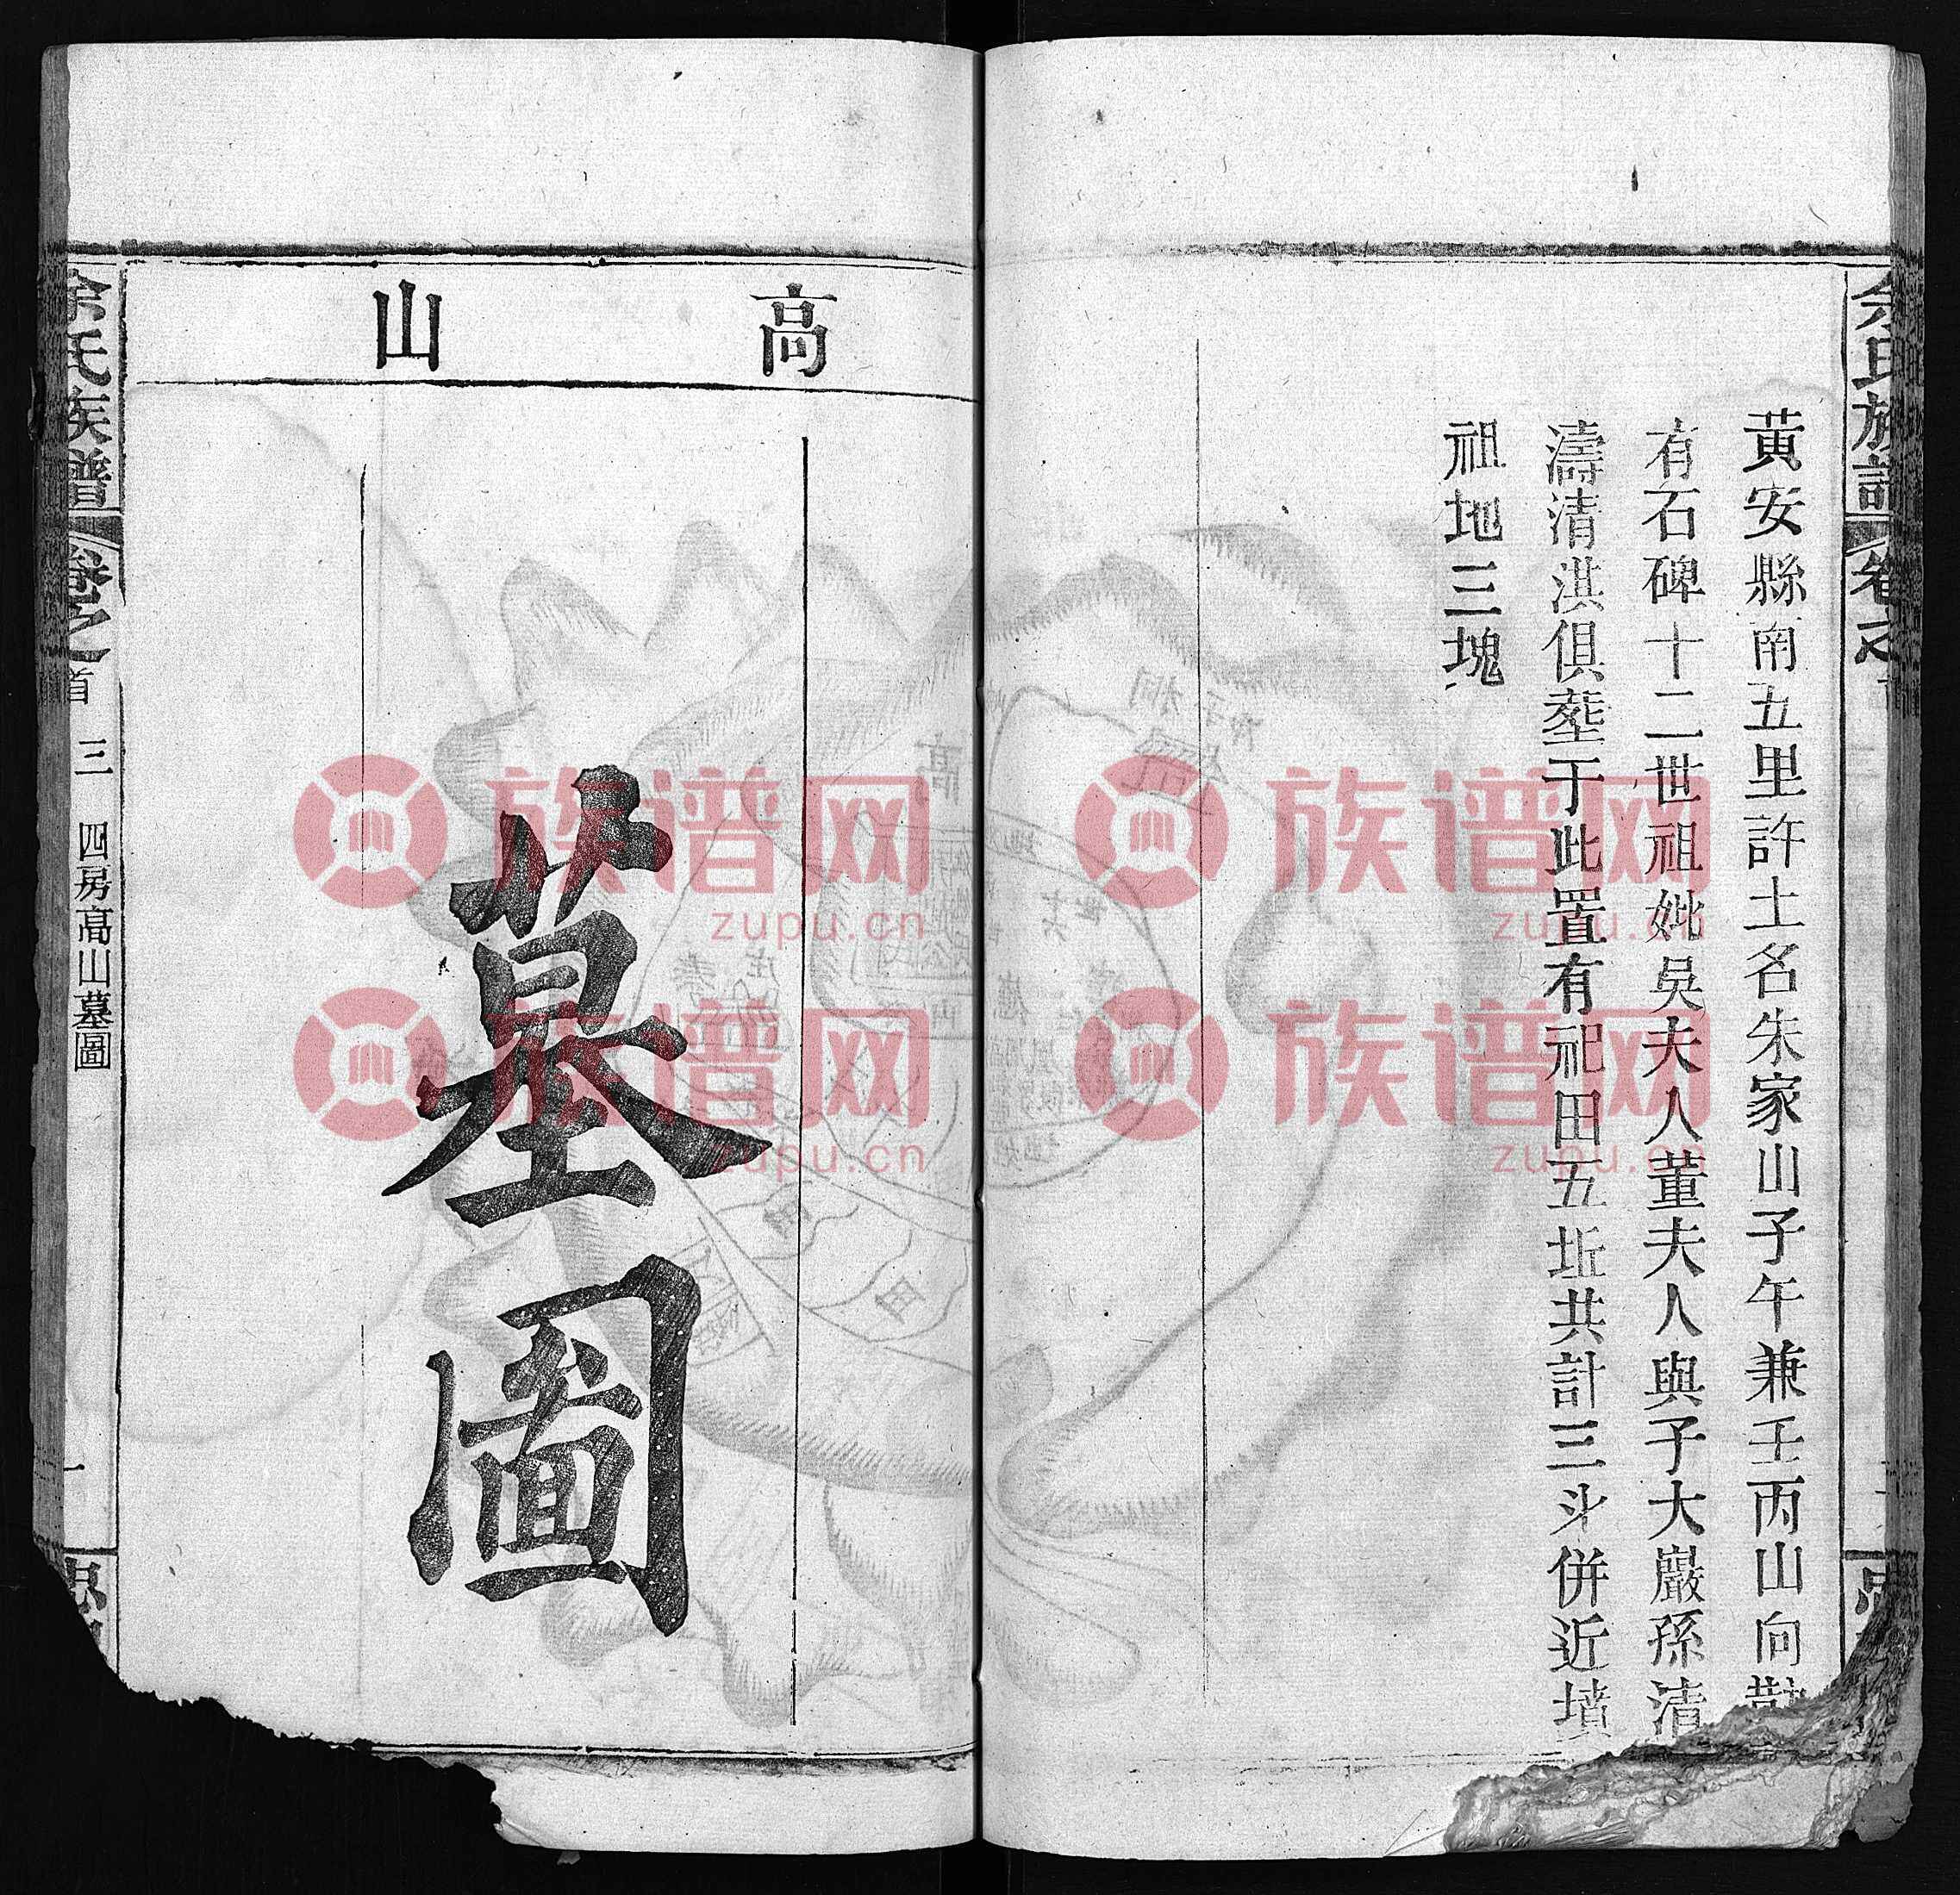 黃安縣南五里許土名朱家山子午兼壬丙山向
有石碑十二世祖妣吳夫人董夫人與子大巖孫清
濤清淇俱塟于此置有祀田五坵共計三斗併近墳
祖地三塊
高山
墓圖
余氏族譜 卷之首 三 四房高山墓圖 一
族谱网 zupu.cn
族谱网 zupu.cn
族谱网 zupu.cn
族谱网 zupu.cn